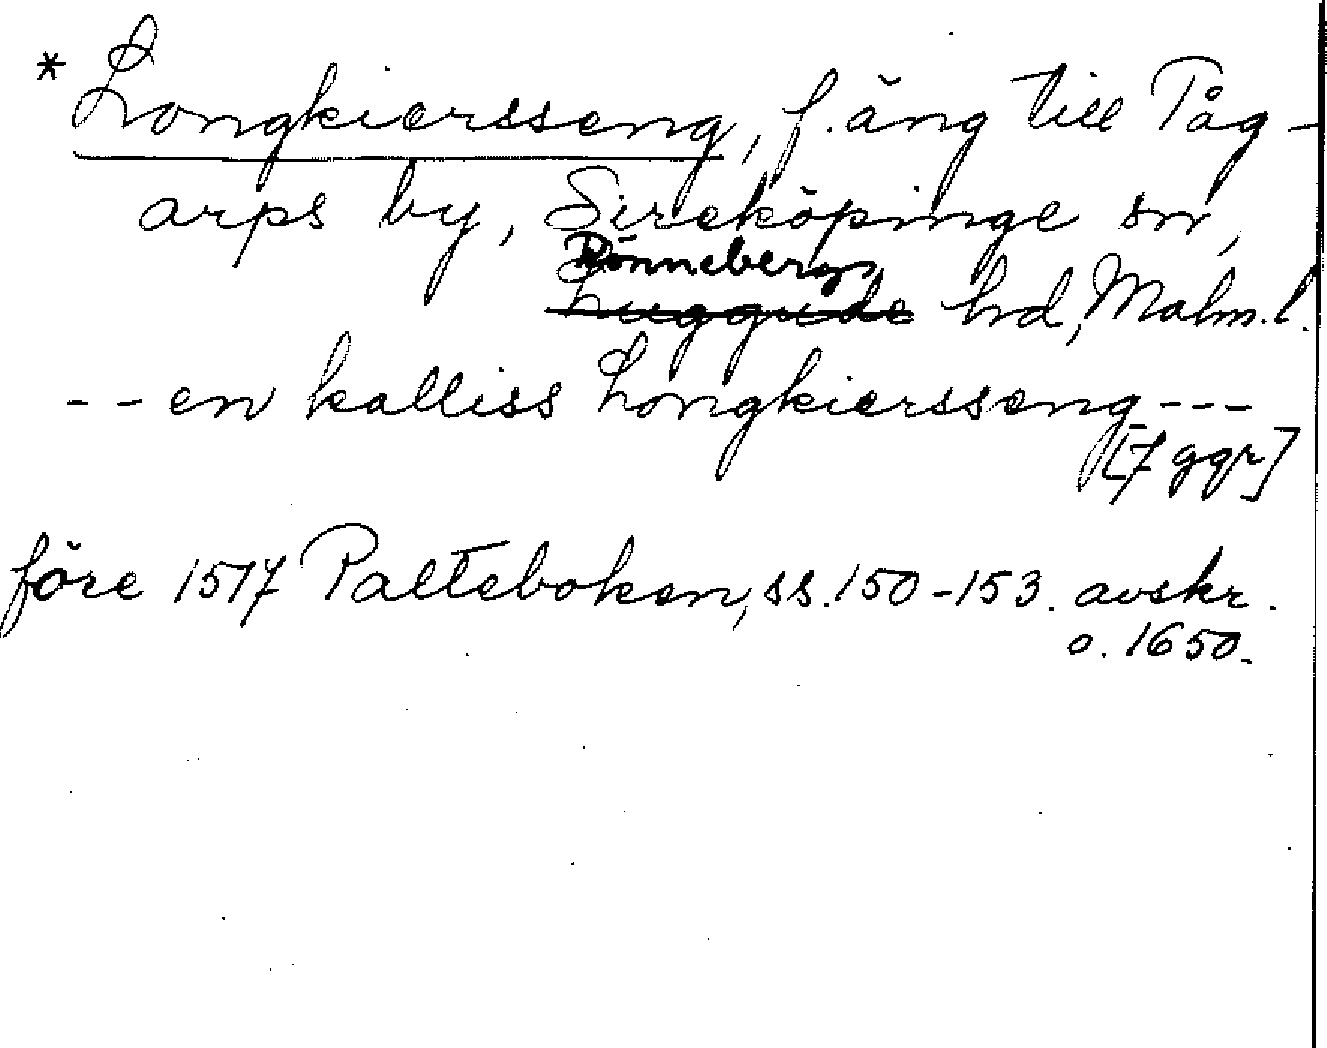 * Longkiersseng, f. äng till Tåg-
arps by, Sireköpinge sn,
Rönnebergs
Luggude hd, Malm. l.
-- en kalliss Longkiersseng ---
[7 ggr]
före 1517 Palteboken, ss. 150-153. avskr.
o. 1650.